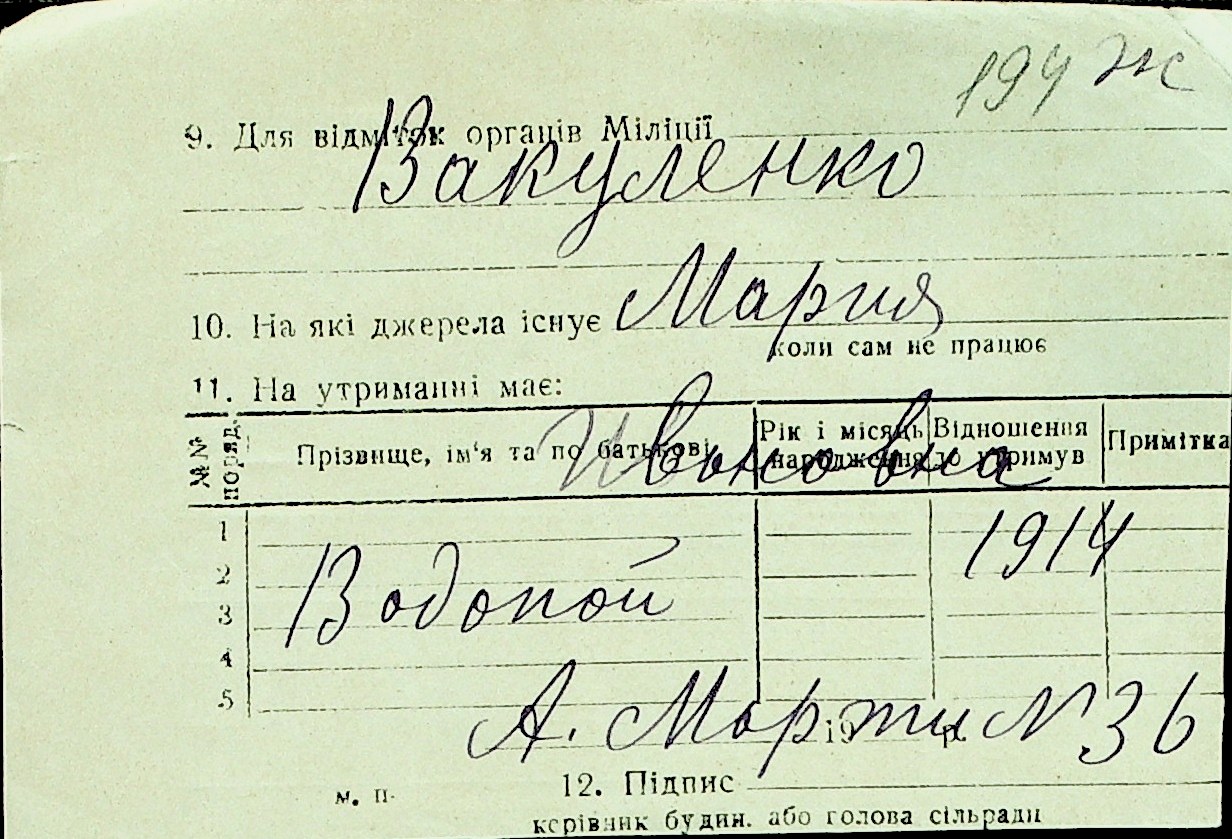 194 ж
9. Для відміток органів Міліції
Вакуленко
10. На які джерела існує
Мария
коли сам не працює
11. На утриманні має:
№№ поряд.
Прізвище, ім'я та по батькові
Рік і місяць народження
Відношення до утримув
Примітка
Ивановна
1
1914
2
Водопой
3
4
5
А. Марти № 36
19 р.
м. п.
12. Підпис
керівник будин. або голова сільради